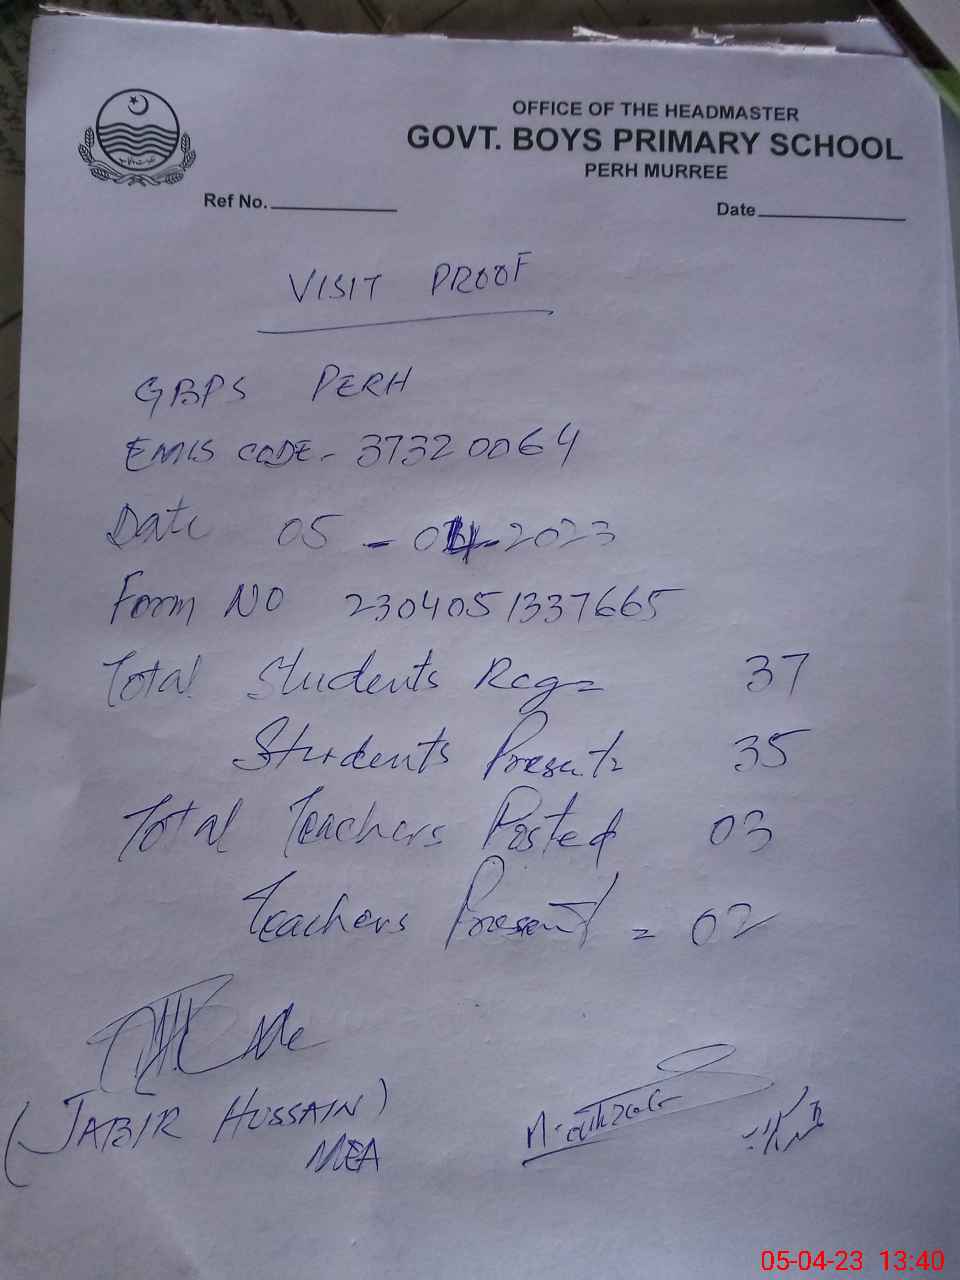 OFFICE OF THE HEADMASTER
GOVT. BOYS PRIMARY SCHOOL
PERH MURREE
Ref No.
Date
VISIT PROOF
GBPS PERH
EMIS CODE - 37320064
Date 05 - 04 - 2023
Form NO 2304051337665
Total Students Reg = 37
Students Present = 35
Total Teachers Posted 03
Teachers Present = 02
(JABIR HUSSAIN)
MEA
05-04-23 13:40